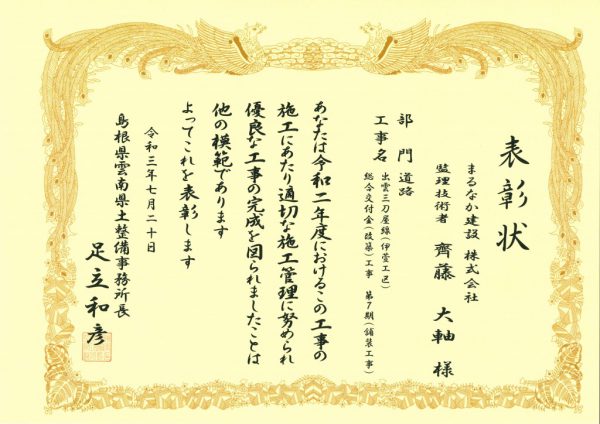 表彰状
まるなか建設 株式会社
監理技術者 齊藤 大軸 様
部門 道路
工事名 出雲三刀屋線(伊萱工区)
総合交付金(改築)工事 第7期(舗装工事)
あなたは令和二年度におけるこの工事の
施工にあたり適切な施工管理に努められ
優良な工事の完成を図られましたことは
他の模範であります
よってこれを表彰します
令和三年七月二十日
島根県雲南県土整備事務所長
足立和彦